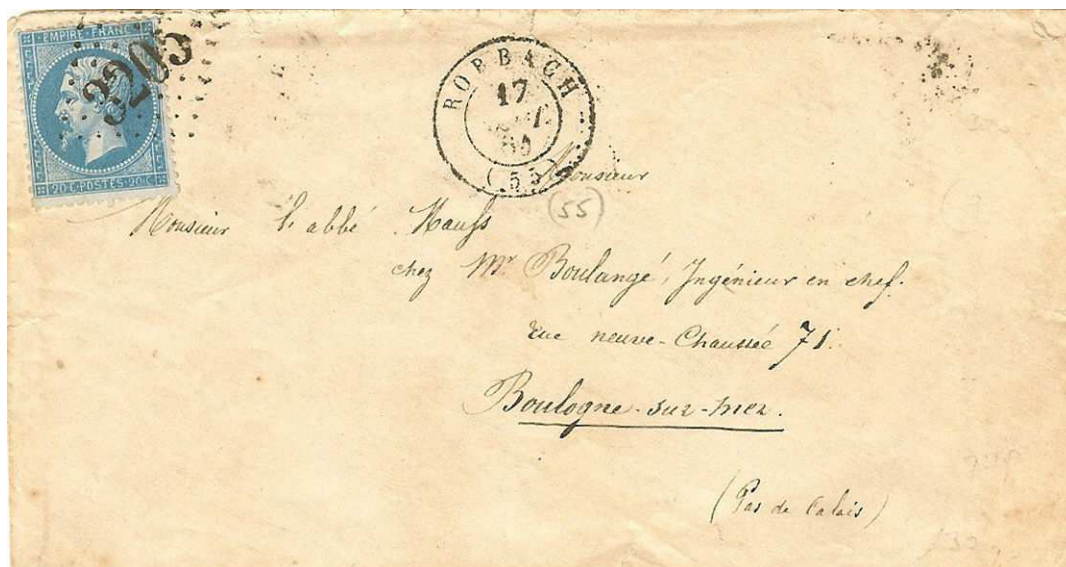 EMPIRE FRANC
3205
20 C. POSTES 20 C.
RORBACH
17
(55)
Monsieur
(55)
Monsieur l'abbé
chez Mr Boulangé, Ingénieur en chef.
rue neuve-Chaussée 71.
Boulogne-sur-mer.
(Pas de Calais)